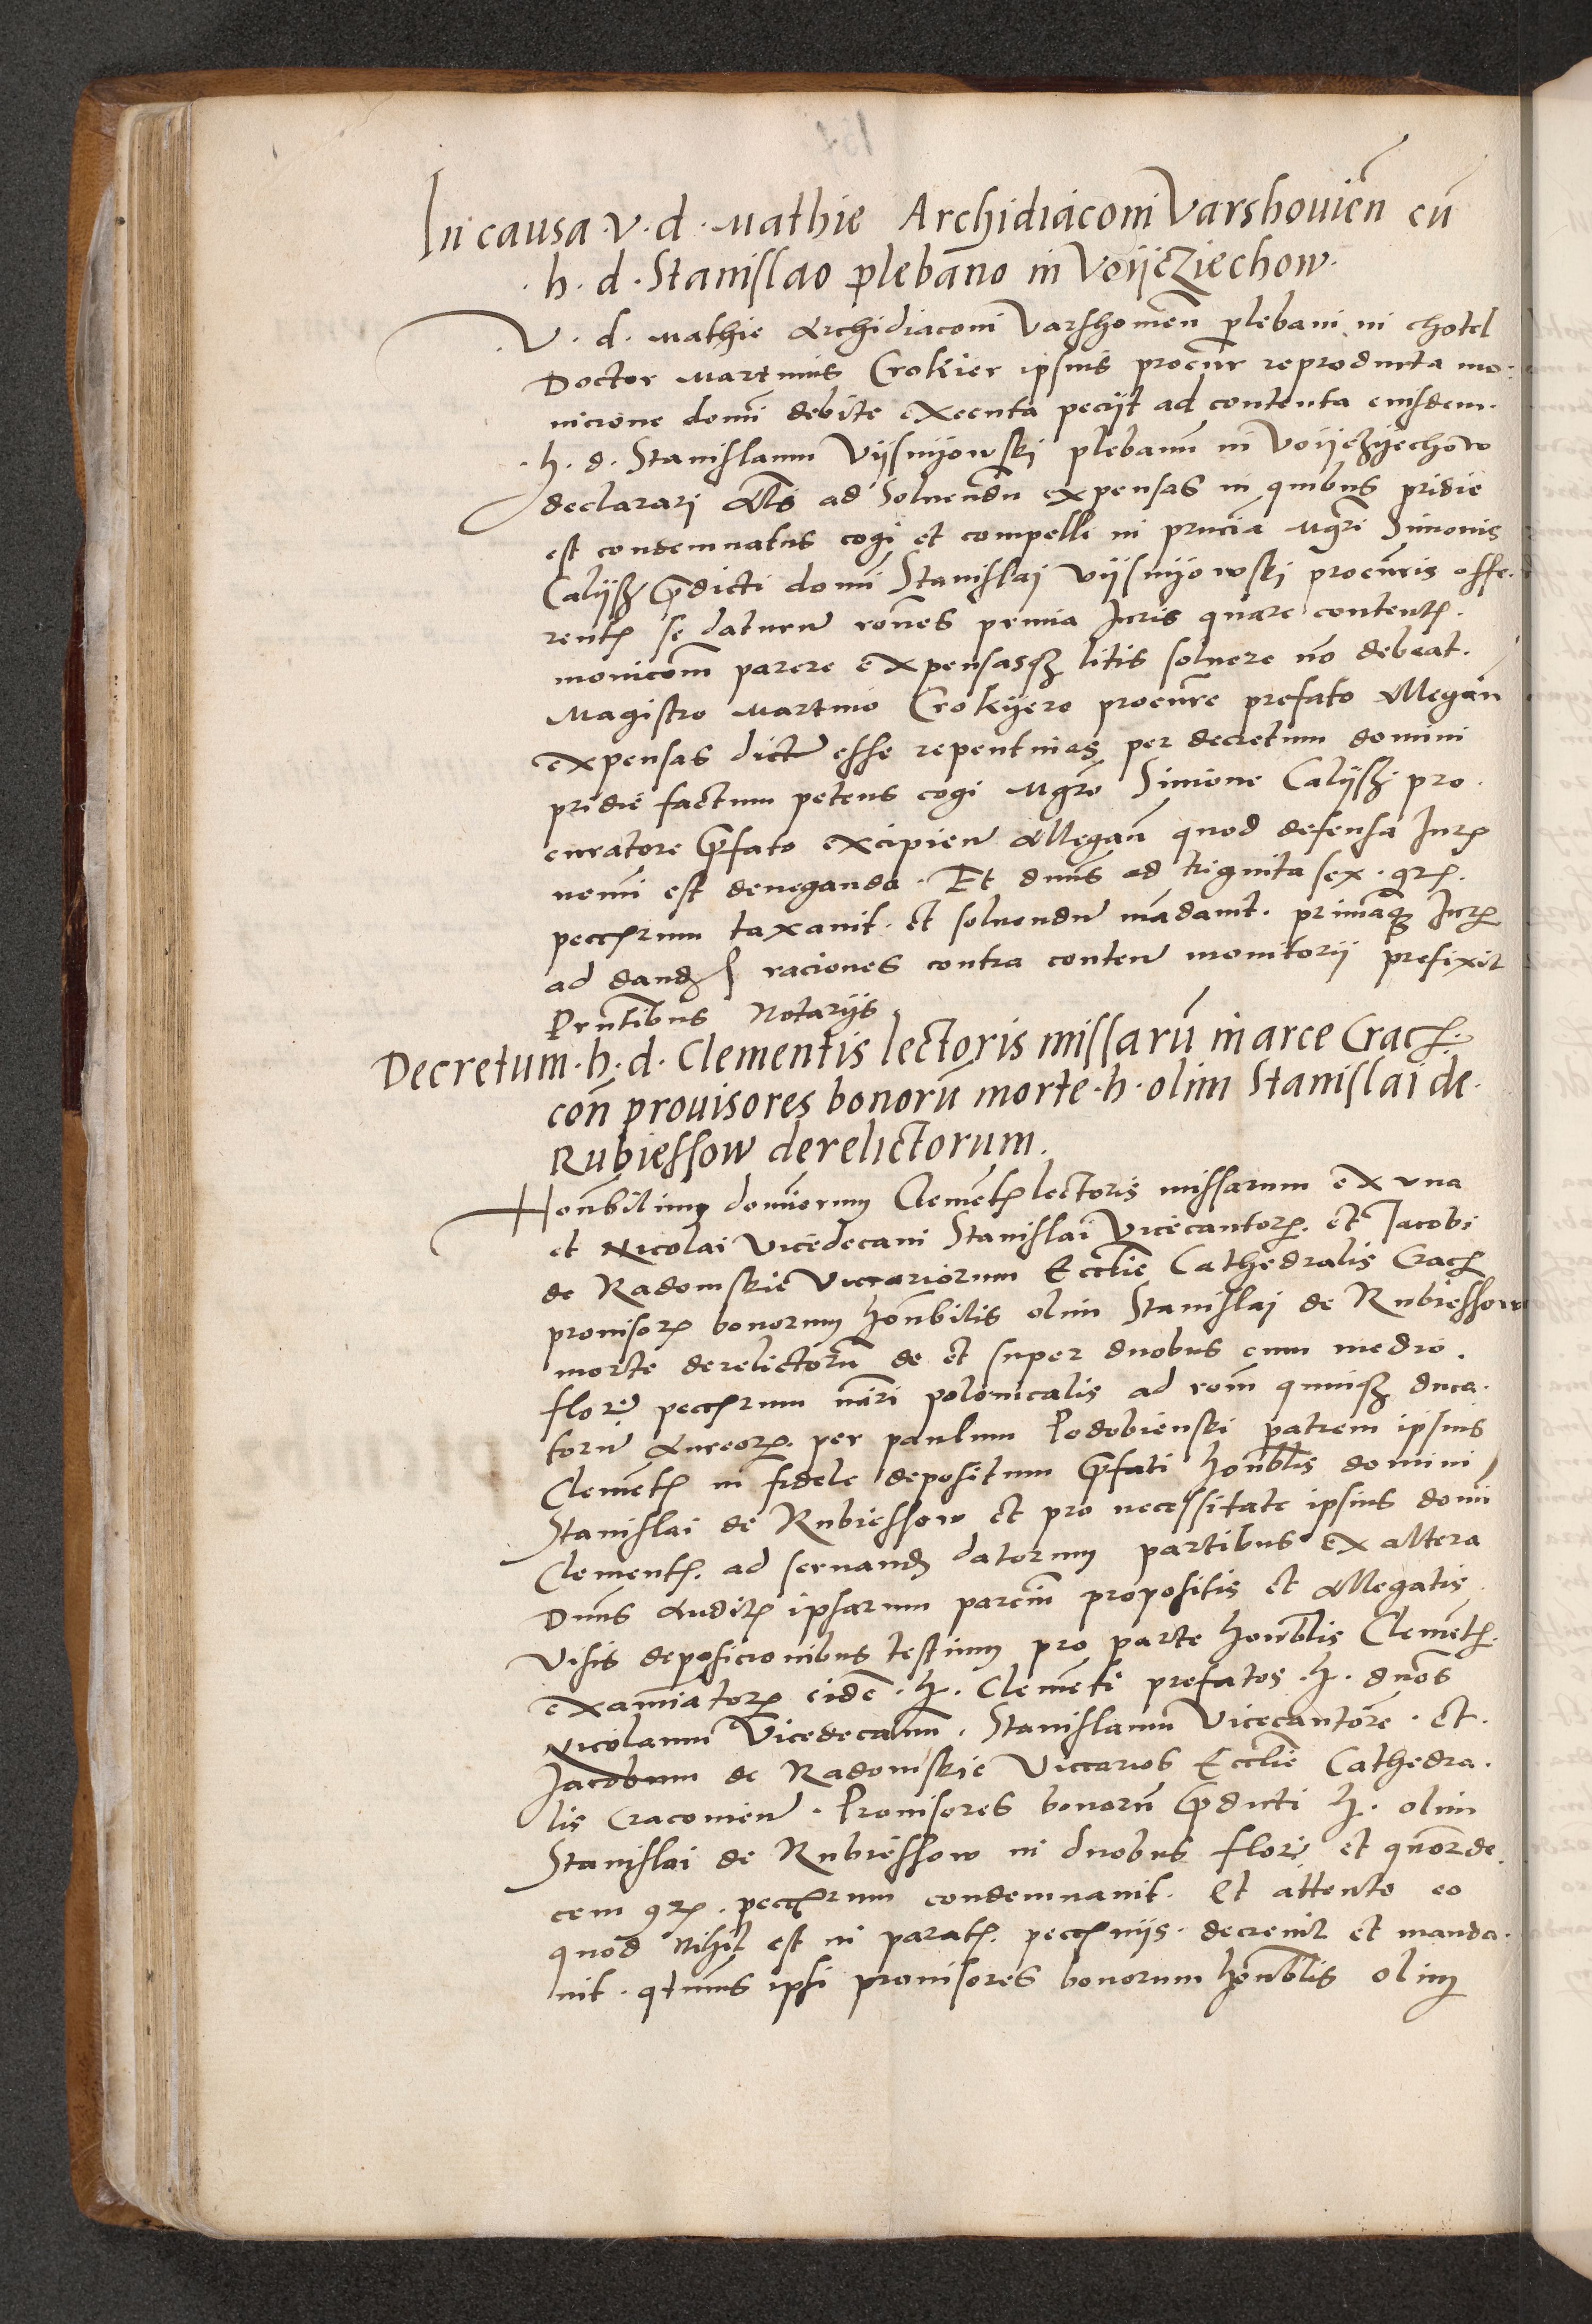 In causa v. d. Mathie Archidiaconi Varshovień cū
h. d. Stanislao plebano in Voijcziechow.
V. d. Mathie Archidiaconi Varshovień plebani in Chotel
Doctor Martinus Crokier ipsius procur reproducta mo-
nicione domī debite executa peciit ad contenta eiusdem.
h. d. Stanislaum Vijsnijowski plebanum in Voijczijechow
declarari Als ad solvendū expensas in quibus pridie
est condemnatus cogi et compelli in pñcia Mgri Simonis
Calijsz p̄dicti domī Stanislai Vijsnijowski procuris offe-
rentꝭ se daturū rones pruia Juris quare contentꝭ
monicoīn parere expensasqȝ litis solvere nō debeat.
Magistro Martino Crokijero procure prefato Allegań
expensas dictū esse repentinas per decretum domini
pridie factum petens cogi Mgro Simone Calijsz pro-
curatore p̄fato excipień Allegań quod defensa Jurꝭ
nemi est deneganda. Et dnus ad triginta sex. gꝛꝭ
pecc̄rum taxavit et solvendū mādavit. primāqȝ Jurꝭ
ad dandꝭ raciones contra conteń monitorij prefixit
Prntibus Notarijs
Decretum. h. d. Clementis lectoris missarū in arce Cracꝭ.
con̄ provisores bonorū morte. h. olim Stanislai de.
Rubiessow derelictorum.
Honbilium dominorum Clementꝭ lectoris missarum ex una
et Nicolai Vicedecani Stanislai Vicecantorꝭ. et Jacobi
de Radomskie Viccariorum Ecclie Cathedralis Cracꝭ
provisorꝭ bonorum honbilis olim Stanislai de Rubiessow
morte derelictorū de et super duobus cum medio.
florꝭ pecc̄rum nūri polonicalis ad rom quuisȝ duca-
torū Aureorꝭ. per paulum Podobienski patrem ipsius
Clementꝭ in fidele depositum p̄fati honblis domini
Stanislai de Rubiessow et pro necessitate ipsius domī
Clementꝭ. ad servandꝭ datorum partibus ex altera
Dnus Auditꝭ ipsarum parcīm propositis et Allegatis
visis deposicionibus testium pro parte honorblis Clementꝭ.
examiatorꝭ eidē. h. Clementi prefatos. h. dnos
Nicolaum Vicedecanū. Stanislaum Vicecantorē. et.
Jacobum de Radomskie Viccarios Ecclie Cathedra-
lis Cracovień. Provisores bonorū p̄dicti h. olim
Stanislai de Rubiessow in duobus florꝭ et quorde-
cem gꝛꝭ. pecc̄rum condemnavit. Et attento eo
quod nihil est in paratꝭ. pecc̄niis. decrevit et manda-
vit. qtenus ipsi provisores bonorum honorblis olim